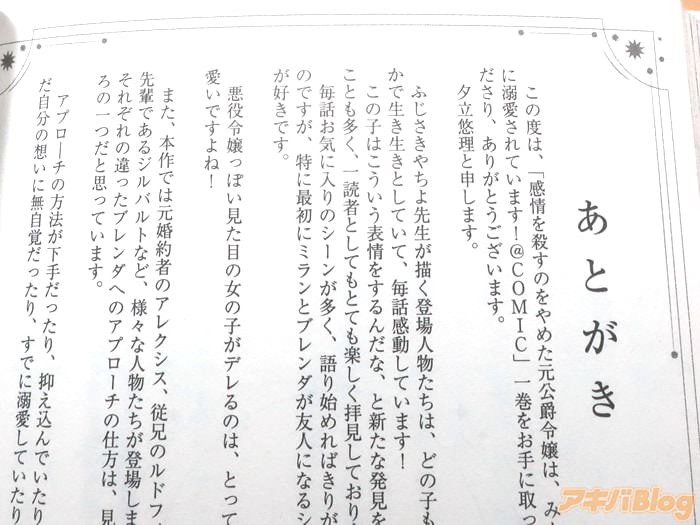 あとがき
この度は、「感情を殺すのをやめた元公爵令嬢は、み
に溺愛されています!@COMIC」一巻をお手に取っ
ださり、ありがとうございます。
夕立悠理と申します。
ふじさきやちよ先生が描く登場人物たちは、どの子も
かで生き生きとしていて、毎話感動しています!
この子はこういう表情をするんだな、と新たな発見を
ことも多く、一読者としてもとても楽しく拝見しており
毎話お気に入りのシーンが多く、語り始めればきりが
のですが、特に最初にミランとブレンダが友人になるシ
が好きです。
悪役令嬢っぽい見た目の女の子がデレるのは、とって
愛いですよね!
また、本作では元婚約者のアレクシス、従兄のルドフ
先輩であるジルバルトなど、様々な人物たちが登場しま
それぞれの違ったブレンダへのアプローチの仕方は、見
ろの一つだと思っています。
アプローチの方法が下手だったり、抑え込んでいたり
だ自分の想いに無自覚だったり、すでに溺愛していたり
アキバBlog